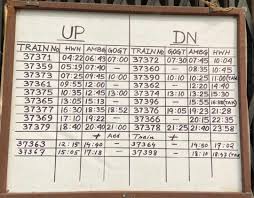 UP DN
TRAIN No HWH AMBG GOGT TRAIN No GOGT AMBG HWH
37371 04:22 06:43 07:00 37372 07:30 07:45 10:04
37359 05:19 07:40 — 37360 — 08:35 10:45
37373 07:25 09:45 10:00 37390 10:10 10:25
37361 09:38 12:00 — 37362 — 12:20 14:40
37375 10:35 12:45 13:00 37374 13:10 13:25 15:30
37365 13:05 15:13 — 37364 — 15:55
37377 16:30 18:35 18:52 37376 19:05 19:23 21:28
37379 18:40 20:40 21:00 37378 21:25 21:35 23:58
+ Add Train +
37363 12:15 14:40 — 37364 — 14:50 17:02
37367 15:05 17:18 — 37398 — 18:10